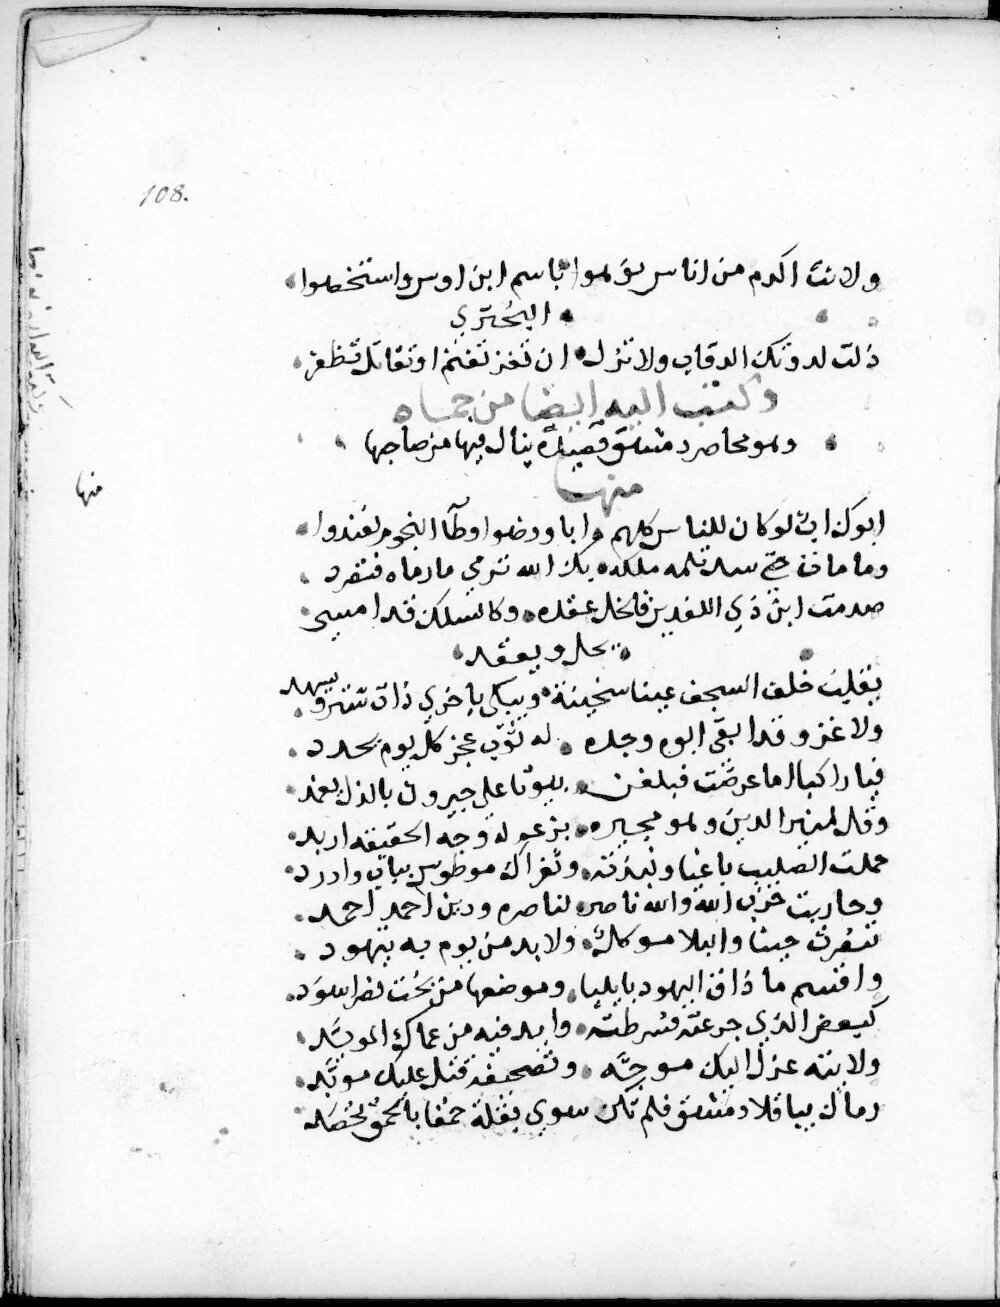 108.
ولانت اكرم من اناس نوهوا باسم ابن اوس واستخصوا
البُحتري
ذلت لدولتك الرقاب ولا تزل ان تغز تغنم او تقاتل تظفر
وكتب اليه ايضا من حماه
وهو محاصر دمشق قصيدة ينال فيها من صاحبها
منها
منها
ابوك اب لو كان للناس كلهم ابا ورضوا وطآ النجوم لفندوا
وما مات حتى سد ثلمه ملكه بك الله ترمي ما رماه فتقرد
صدمت ابن ذي اللغدين فانحل عقده وكالسلك قد امسى
يحل ويعقد
يقلب خلف السجف عينا سخينة ويبكي باخرى ذات شتر ويسهد
ولا غرو قد ابقى ابوه وجده له ثوب عجز كل يوم يجدد
فيا راكبا اما عرضت فبلغن بيوتا على جيرون بالذل تعمد
وقل لمنير الدين وهو مجيره بزعم له وجه الحقيقه اربد
حملت الصليب باغيا ونبذته وثغراك موطوس بباب وادرد
وحاربت حزب الله والله ناصر لناصره ودين احمد احمد
تنصرت حينا والبلا موكل ولا بد من يوم به تتهود
واقسم ما ذاق اليهود بايليا وموضعها من بخت نصر اسود
كبعض الذي جرعته فسرطته وايد فيه من عماك المؤيد
ولابنته عزل اليك موجه وتصحيفه قتل عليك مؤبد
رماك بباقلا دمشق فلم تكن سوى بقلة حمقا بالحمق تحصد